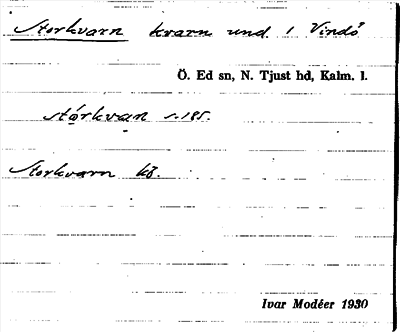 Storkvarn kvarn und. 1 Vindö
Ö. Ed sn, N. Tjust hd, Kalm. l.
stórkvan s. 185.
Storkvarn
Ivar Modéer 1930